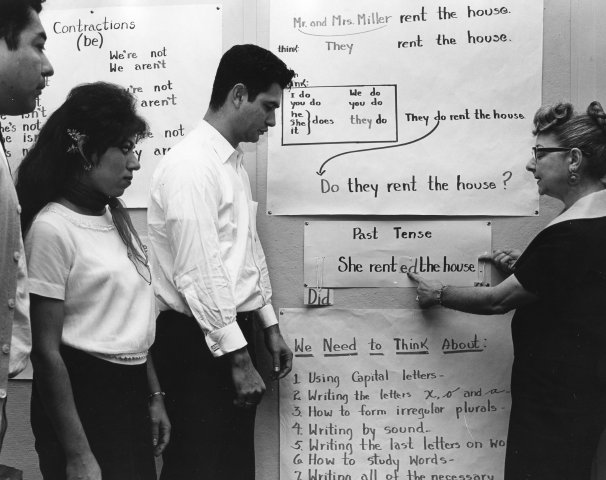 Contractions
(be)
We're not
We aren't
're not
aren't
isn't
he's not
re not
Mr. and Mrs. Miller rent the house.
think: They rent the house.
I do We do
you do you do
he
She does they do
it
They do rent the house
Do they rent the house?
Past Tense
She rented the house
Did
We Need to Think About:
1. Using Capital letters-
2. Writing the letters x, o and a-
3. How to form irregular plurals-
4. Writing by sound..
5. Writing the last letters on wo
6. How to study Words-
7. Writing all of the necessary